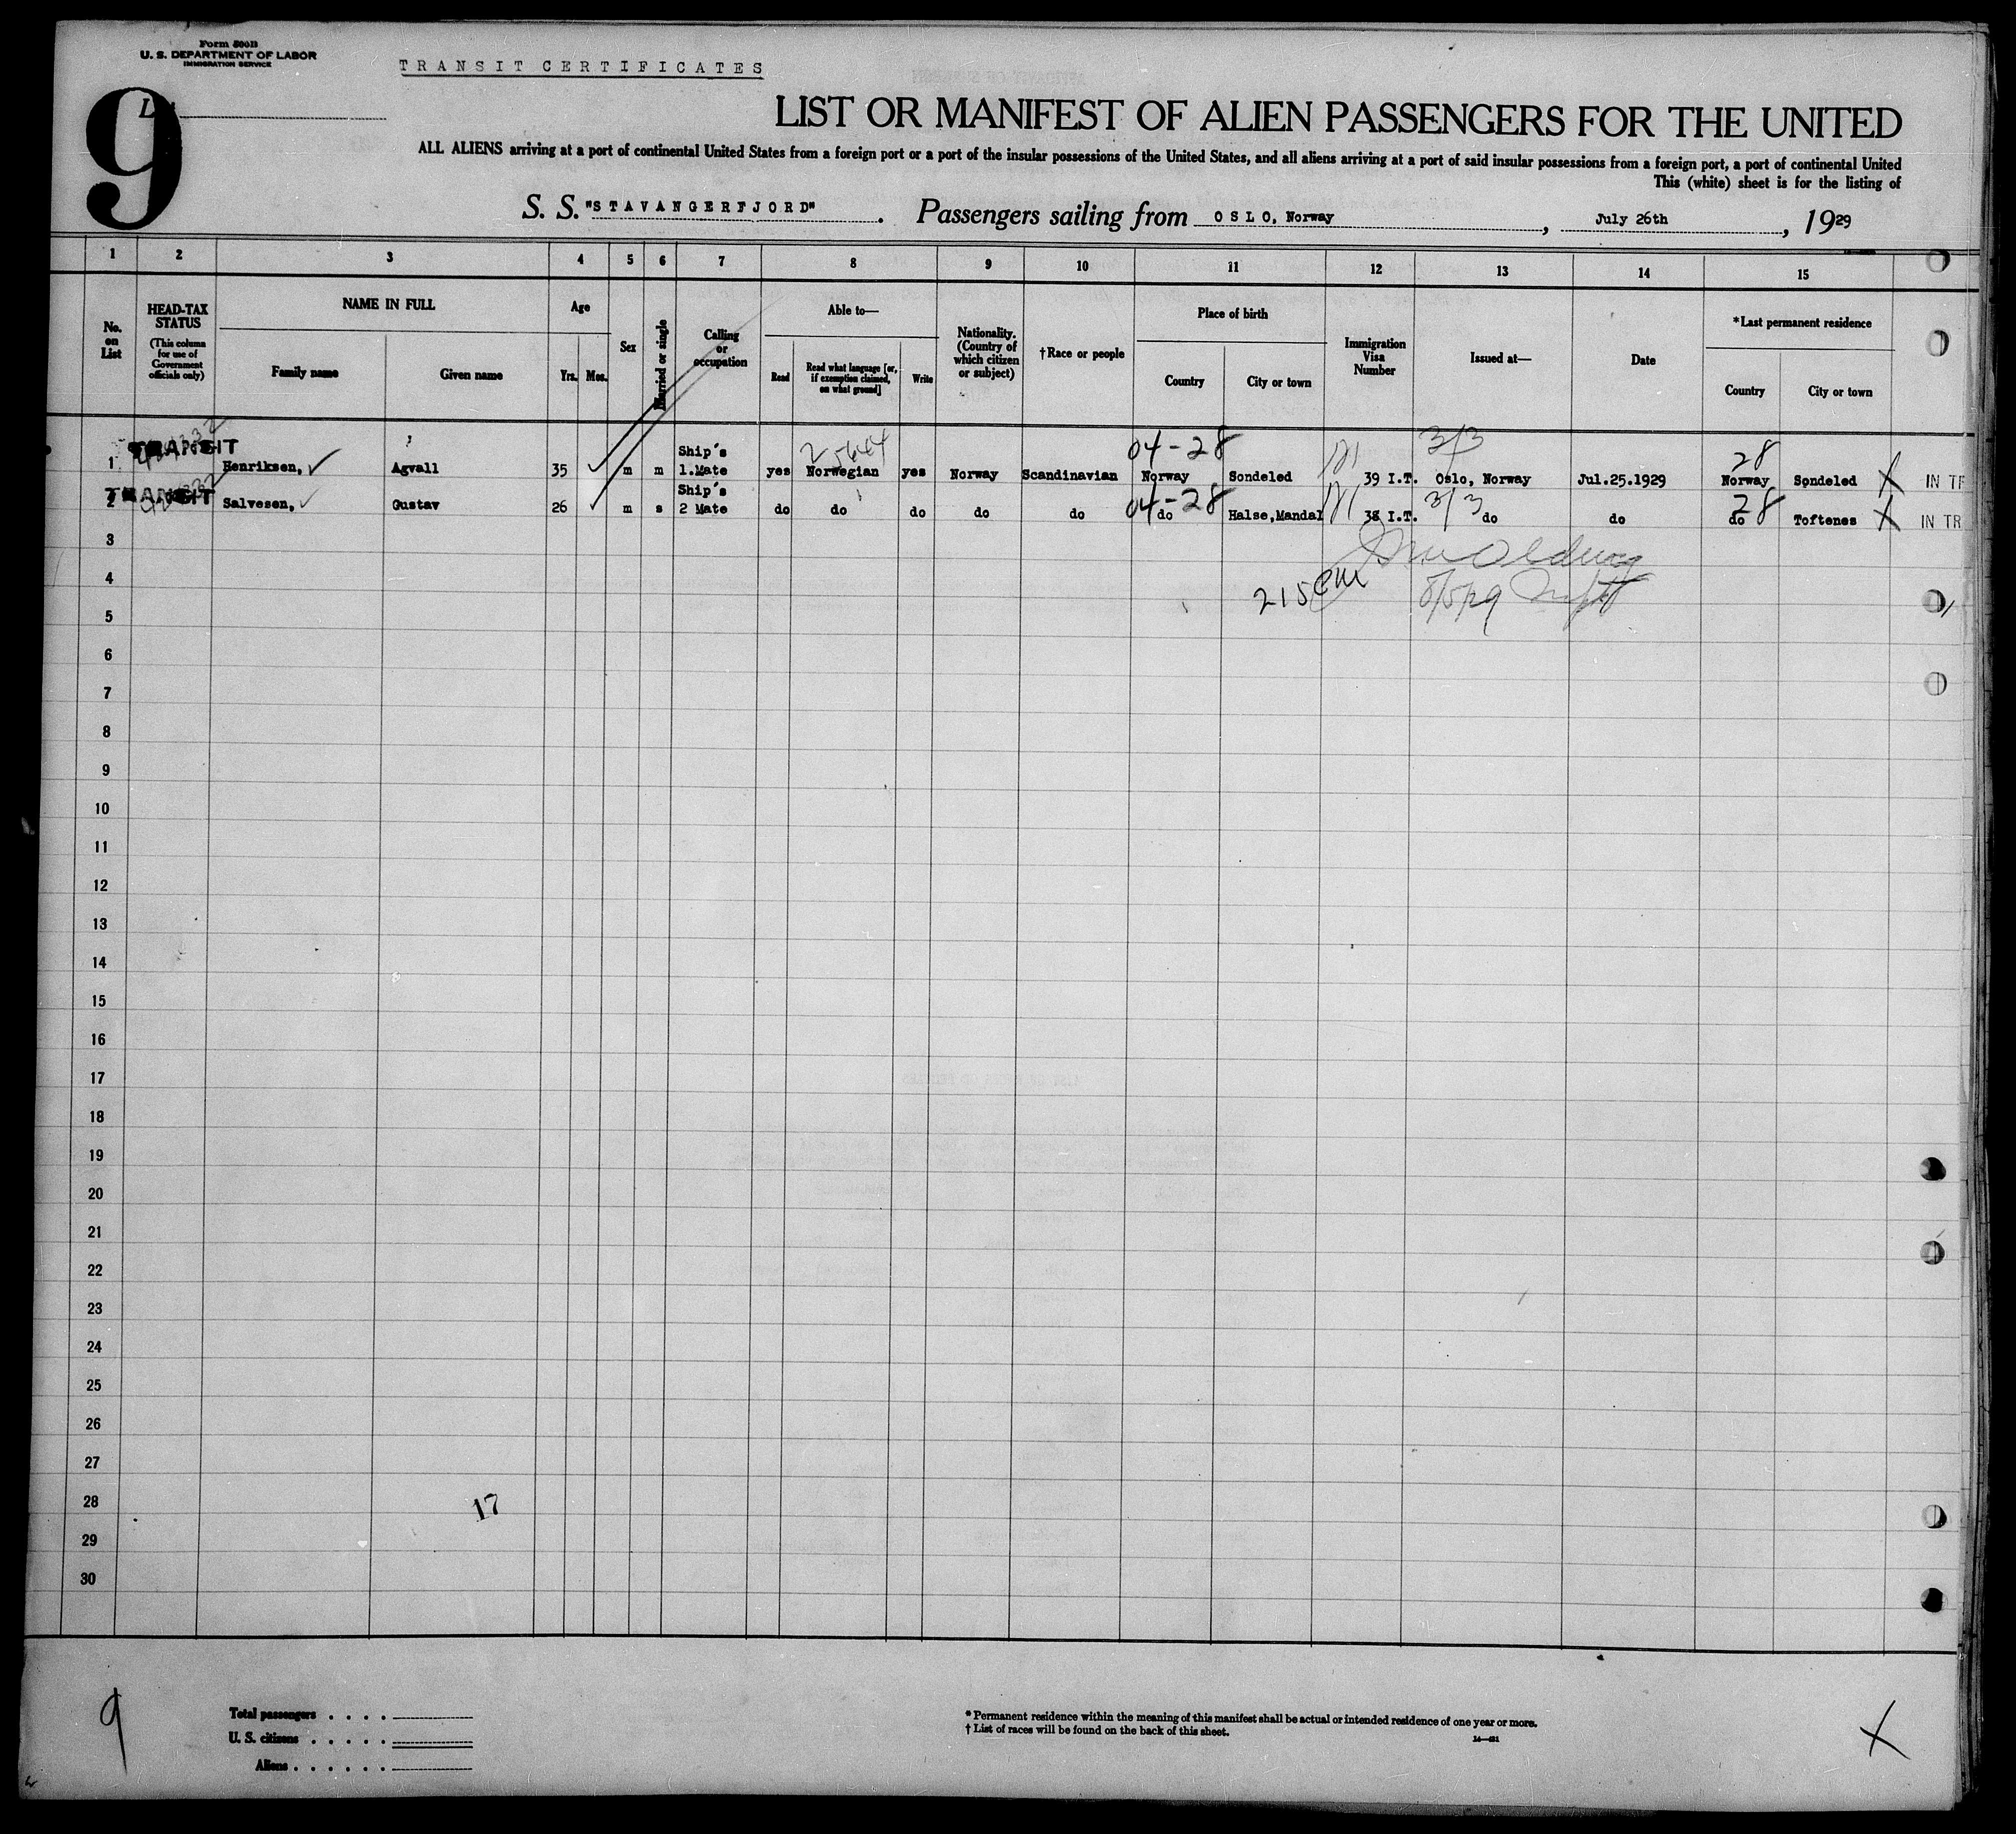 Form 500B
U. S. DEPARTMENT OF LABOR
IMMIGRATION SERVICE
TRANSIT CERTIFICATES
9
LIST OR MANIFEST OF ALIEN PASSENGERS FOR THE UNITED
ALL ALIENS arriving at a port of continental United States from a foreign port or a port of the insular possessions of the United States, and all aliens arriving at a port of said insular possessions from a foreign port, a port of continental United
This (white) sheet is for the listing of
S. S. "STAVANGERFJORD". Passengers sailing from OSLO, Norway, July 26th, 1929
1 2 3 4 5 6 7 8 9 10 11 12 13 14 15
No. on List
HEAD-TAX STATUS
(This column for use of Government officials only)
NAME IN FULL
Family name
Given name
Age
Yrs. Mos.
Sex
Married or single
Calling or occupation
Able to—
Read
Read what language [or, if exemption claimed, on what ground]
Write
Nationality. (Country of which citizen or subject)
†Race or people
Place of birth
Country
City or town
Immigration Visa Number
Issued at—
Date
*Last permanent residence
Country
City or town
04-28 3/3 28
1 TRANSIT Henriksen, Agvall 35 m m Ship's 1.Mate yes Norwegian yes Norway Scandinavian Norway Sondeled 39 I.T. Oslo, Norway Jul.25.1929 Norway Sondeled X IN TR
2 TRANSIT Salvesen, Gustav 26 m s Ship's 2 Mate do do do do do 04-28 do Halse,Mandal 38 I.T. 3/3 do do 28 do Toftenes X IN TR
3
4
215
8/5/29
5
6
7
8
9
10
11
12
13
14
15
16
17
18
19
20
21
22
23
24
25
26
27
28
17
29
30
9
Total passengers . . . .
U. S. citizens . . . . .
Aliens . . . . . .
* Permanent residence within the meaning of this manifest shall be actual or intended residence of one year or more.
† List of races will be found on the back of this sheet.
X